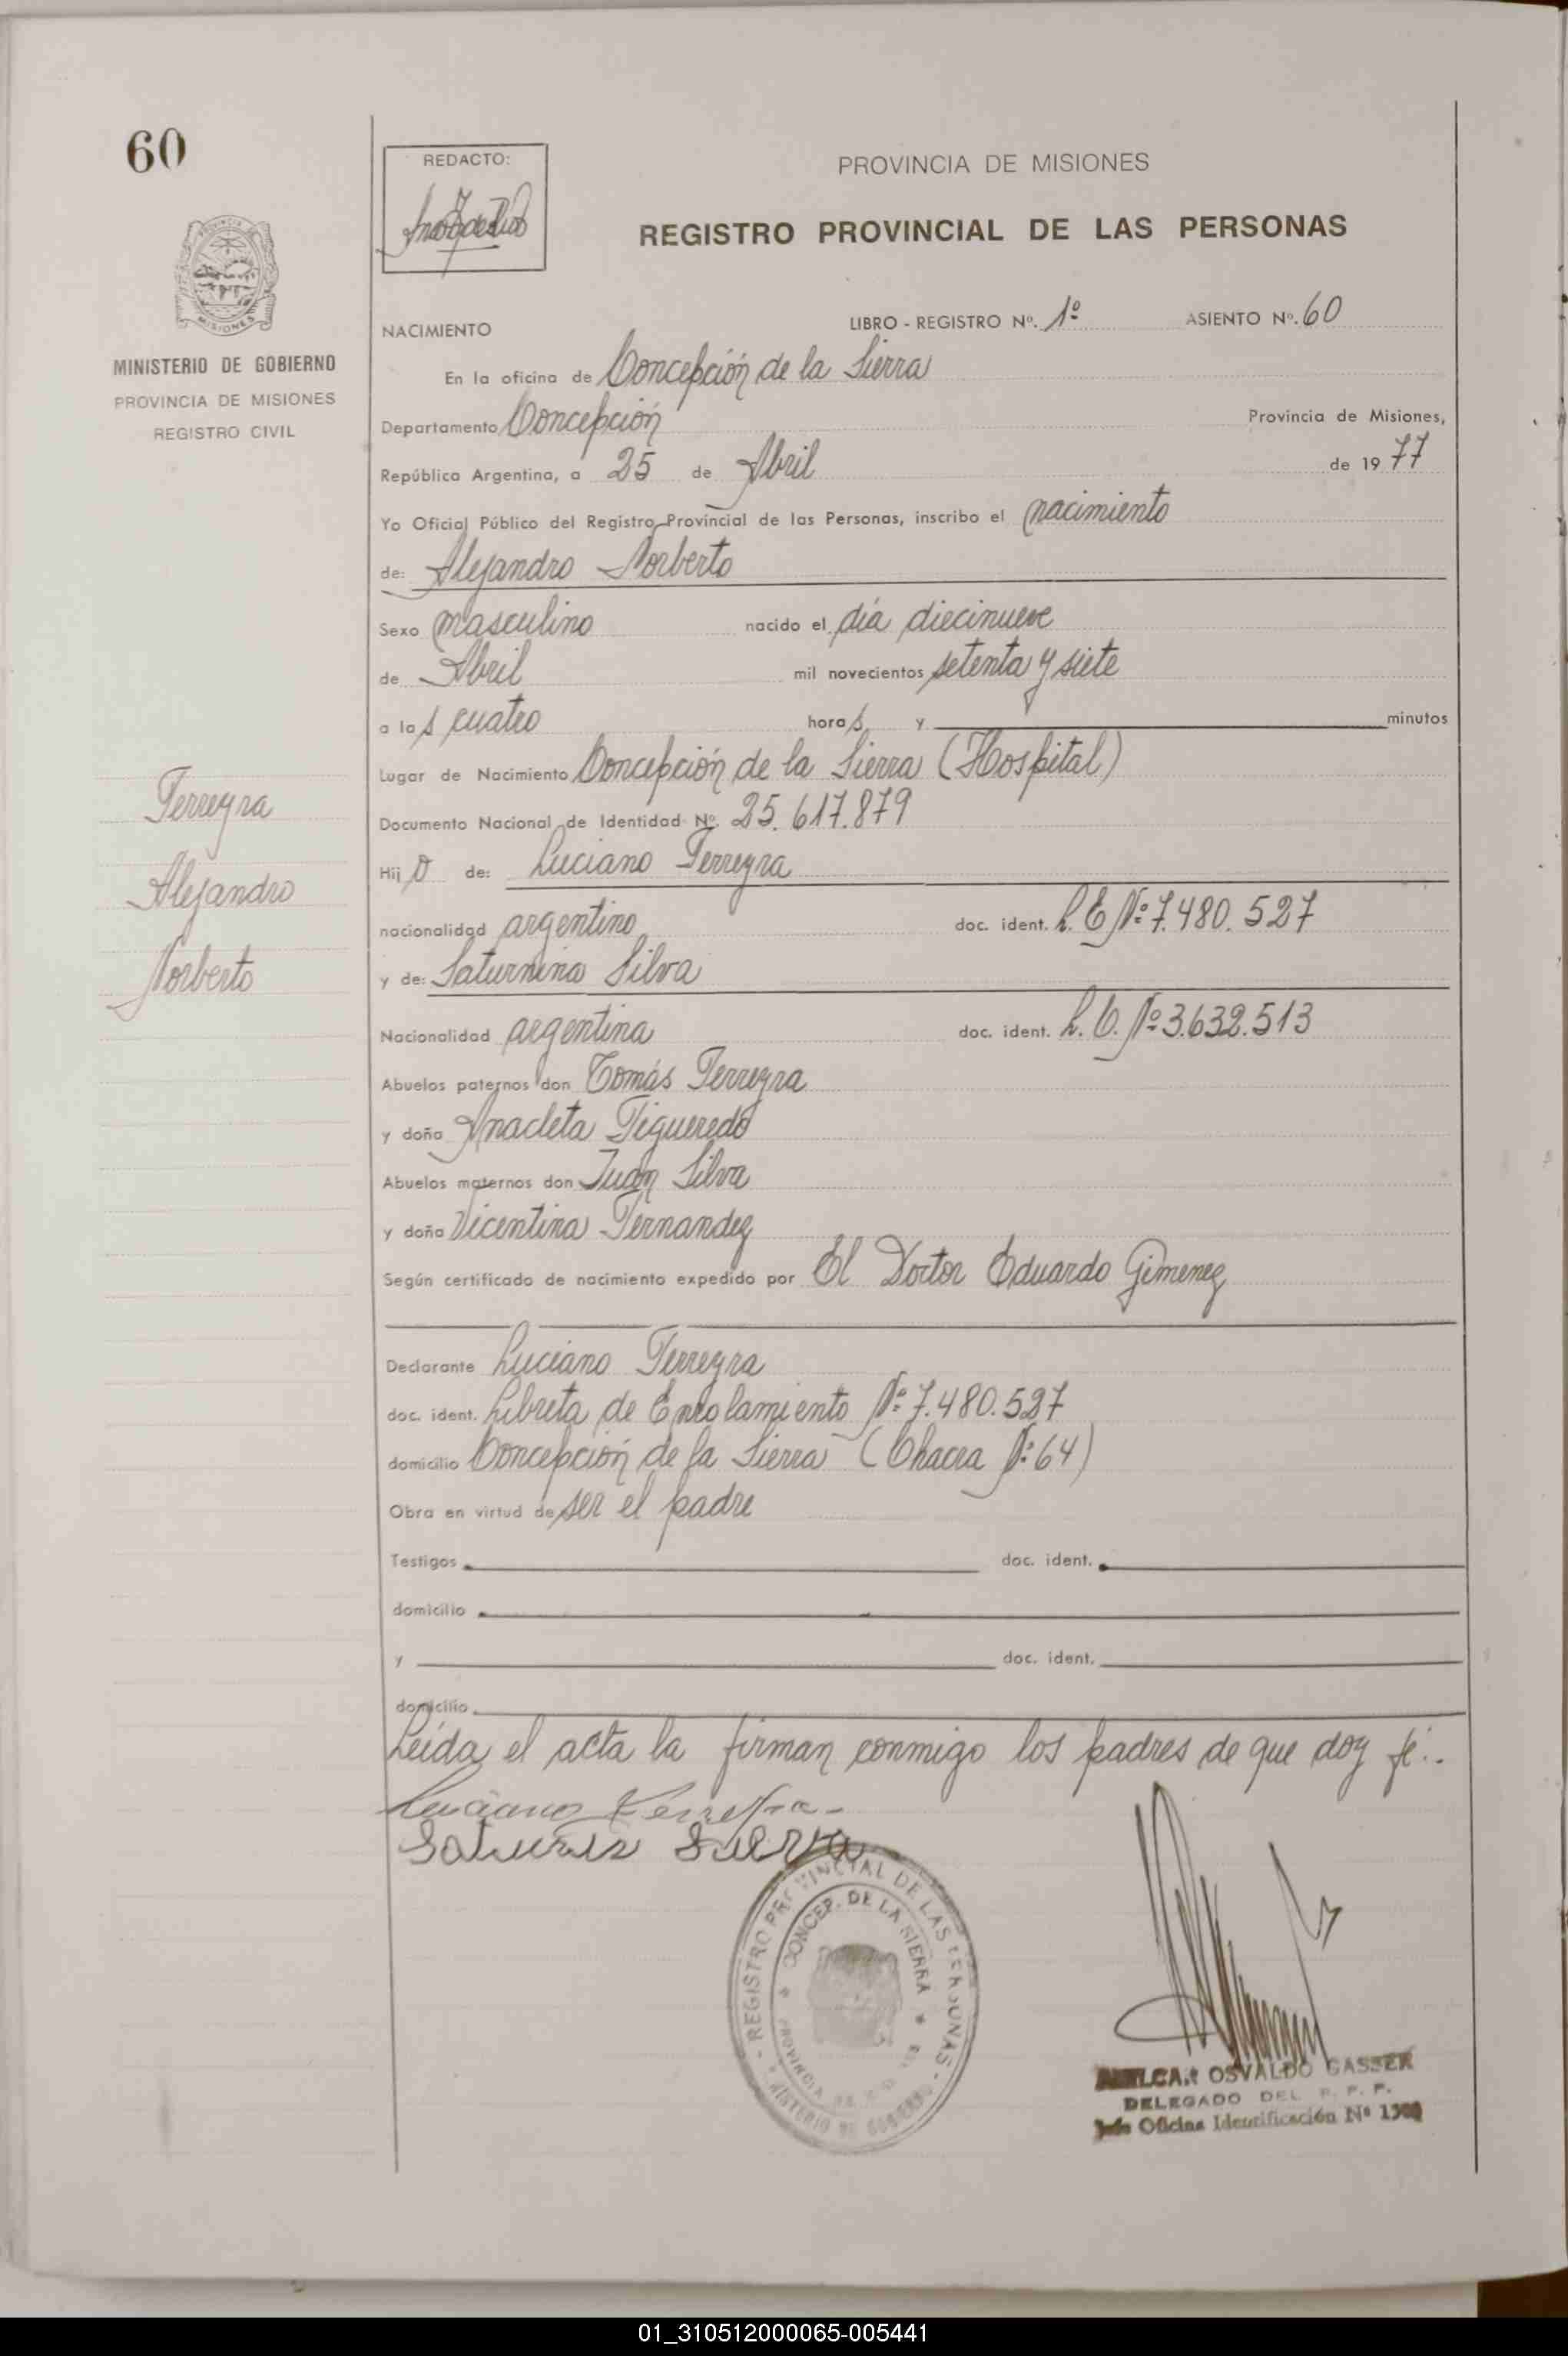 60
REDACTO:
PROVINCIA DE MISIONES
REGISTRO PROVINCIAL DE LAS PERSONAS
MISIONES
MINISTERIO DE GOBIERNO
PROVINCIA DE MISIONES
REGISTRO CIVIL
NACIMIENTO LIBRO - REGISTRO Nº. 1º ASIENTO Nº. 60
En la oficina de Concepción de la Sierra
Departamento Concepción Provincia de Misiones,
República Argentina, a 25 de Abril de 1977
Yo Oficial Público del Registro Provincial de las Personas, inscribo el nacimiento
de: Alejandro Norberto
Sexo masculino nacido el día diecinueve
de Abril mil novecientos setenta y siete
a las cuatro horas y minutos
Lugar de Nacimiento Concepción de la Sierra (Hospital)
Documento Nacional de Identidad Nº. 25.617.879
Hijo de: Luciano Ferreyra
nacionalidad argentino doc. ident. L.E Nº 7.480.527
y de: Saturnina Silva
Nacionalidad argentina doc. ident. L.C. Nº 3.632.513
Abuelos paternos don Tomás Ferreyra
y doña Anacleta Figueredo
Abuelos maternos don Juan Silva
y doña Vicentina Fernandez
Según certificado de nacimiento expedido por El Doctor Eduardo Gimenez
Declarante Luciano Ferreyra
doc. ident. Libreta de Enrolamiento Nº 7.480.527
domicilio Concepción de la Sierra (Chacra Nº 64)
Obra en virtud de ser el padre
Testigos doc. ident.
domicilio
y doc. ident.
domicilio
Leída el acta la firman conmigo los padres de que doy fé..
Ferreyra
Alejandro
Norberto
Luciano Ferreyra
REGISTRO PROVINCIAL DE LAS PERSONAS
CONCEP. DE LA SIERRA
PROVINCIA
AMILCAR OSVALDO GASSER
DELEGADO DEL R. P. P.
Jefe Oficina Identificación Nº
01_310512000065-005441